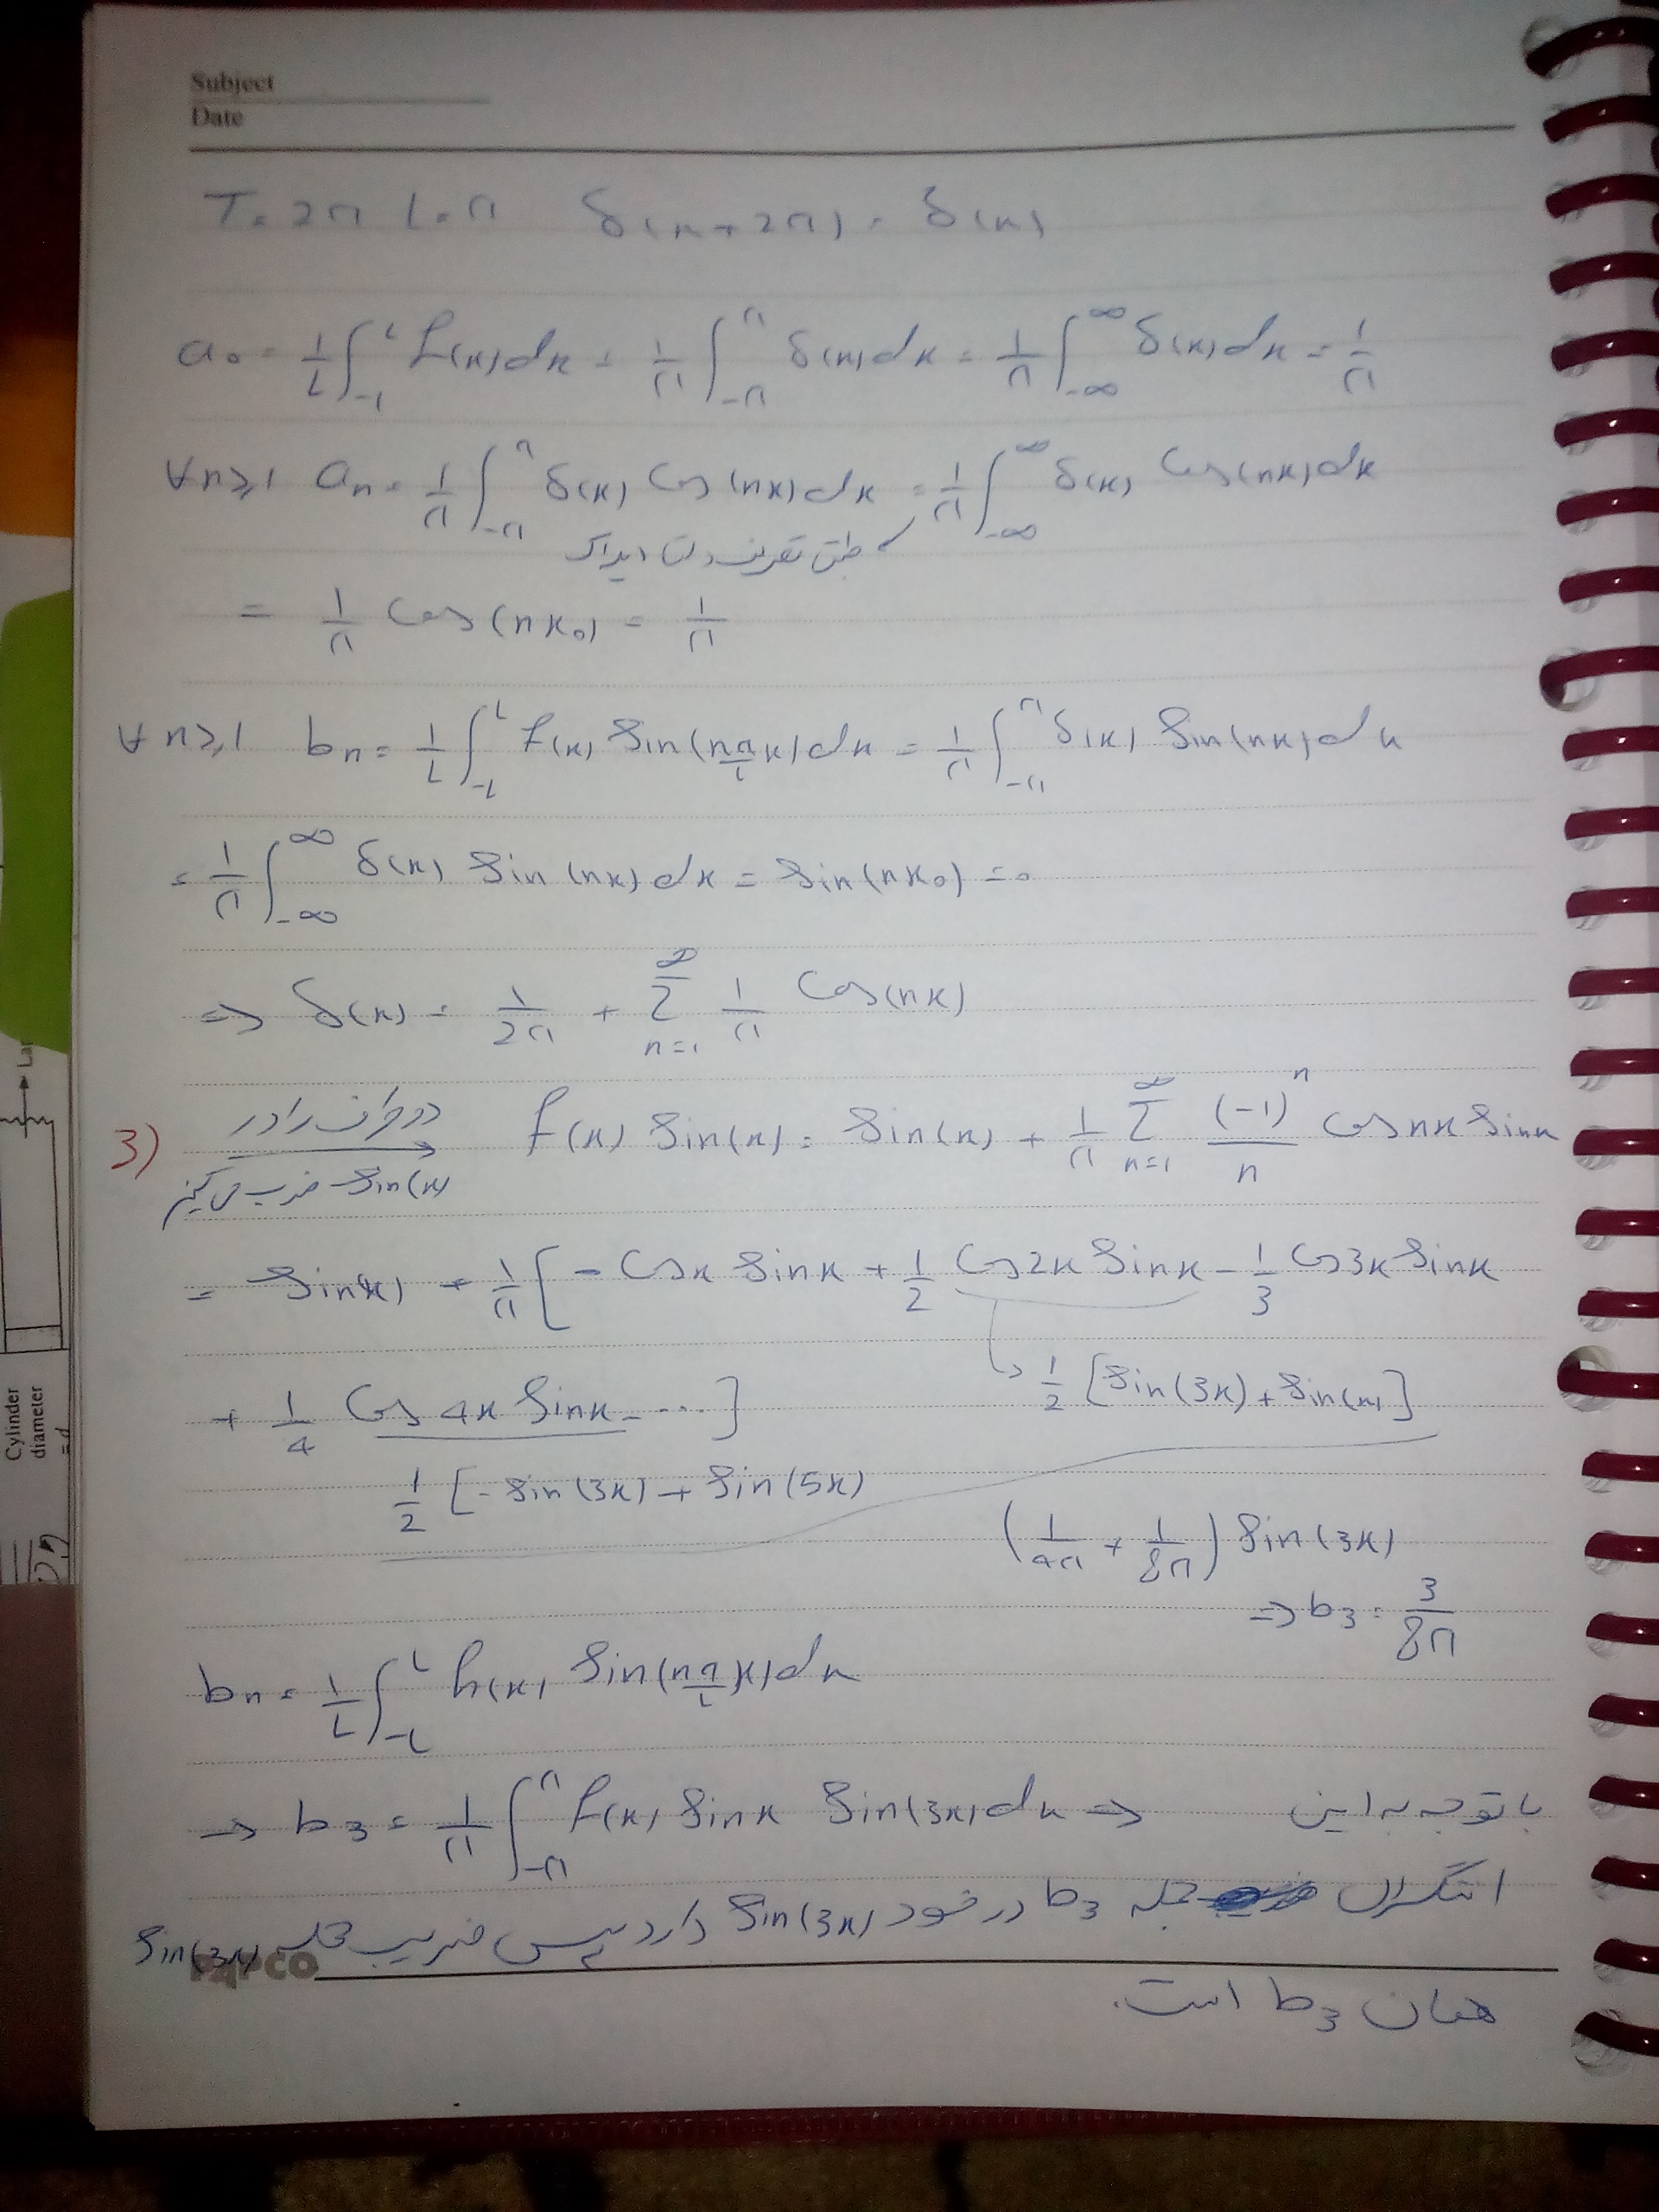 Subject
Date
T = 2π l = π δ(x+2π) = δ(x)
a₀ = 1/L ∫_{-L}^{L} f(x)dx = 1/π ∫_{-π}^{π} δ(x)dx = 1/π ∫_{-∞}^{∞} δ(x)dx = 1/π
∀n≥1 aₙ = 1/π ∫_{-π}^{π} δ(x) Cos(nx)dx = 1/π ∫_{-∞}^{∞} δ(x) Cos(nx)dx
طبق تعریف دلتا دیراک
= 1/π Cos(nx₀) = 1/π
∀n≥1 bₙ = 1/L ∫_{-L}^{L} f(x) Sin(nπ/L x)dx = 1/π ∫_{-π}^{π} δ(x) Sin(nx)dx
= 1/π ∫_{-∞}^{∞} δ(x) Sin(nx)dx = Sin(nx₀) = 0
⇒ δ(x) = 1/2π + Σ_{n=1}^{∞} 1/π Cos(nx)
3) دو طرف را در Sin(x) ضرب می کنیم → f(x) Sin(x) = Sin(x) + 1/π Σ_{n=1}^{∞} (-1)ⁿ/n Cos nx Sin x
= Sin(x) + 1/π [ - Cos x Sin x + 1/2 Cos 2x Sin x - 1/3 Cos 3x Sin x
+ 1/4 Cos 4x Sin x - ... ]
1/2 [Sin(3x) + Sin(x)]
1/2 [- Sin(3x) + Sin(5x)
(1/4π + 1/8π) Sin(3x)
⇒ b₃ = 3/8π
bₙ = 1/L ∫_{-L}^{L} h(x) Sin(nπ/L x)dx
⇒ b₃ = 1/π ∫_{-π}^{π} f(x) Sin x Sin(3x)dx ⇒ با توجه به این
انتگرال جمله b₃ در خود Sin(3x) دارد پس ضریب جمله Sin(3x)
همان b₃ است.
PAPCO
Cylinder
diameter